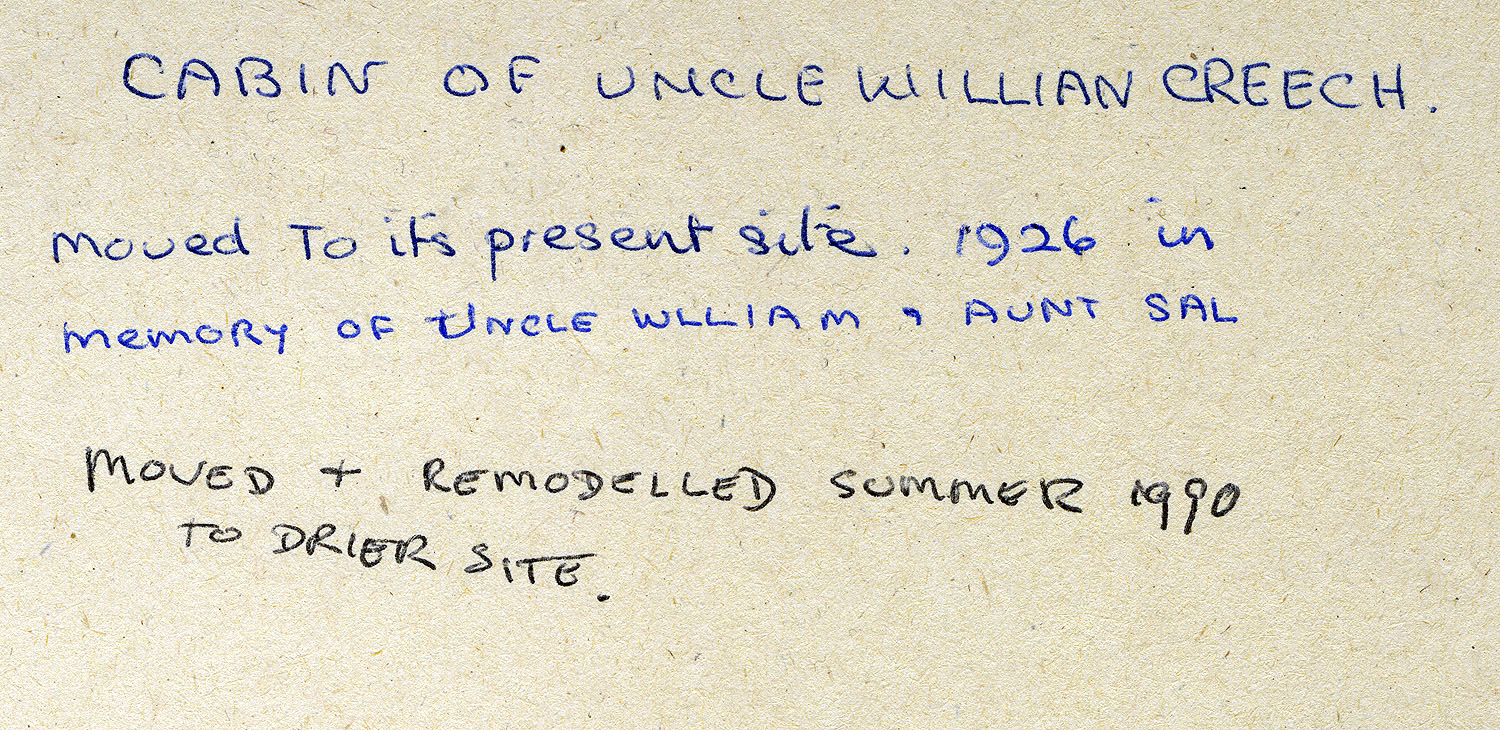 CABIN OF UNCLE WILLIAN CREECH.
Moved To its present site. 1926 in
memory OF UNCLE WLLIAM & AUNT SAL
MOVED + REMODELLED SUMMER 1990
TO DRIER SITE.